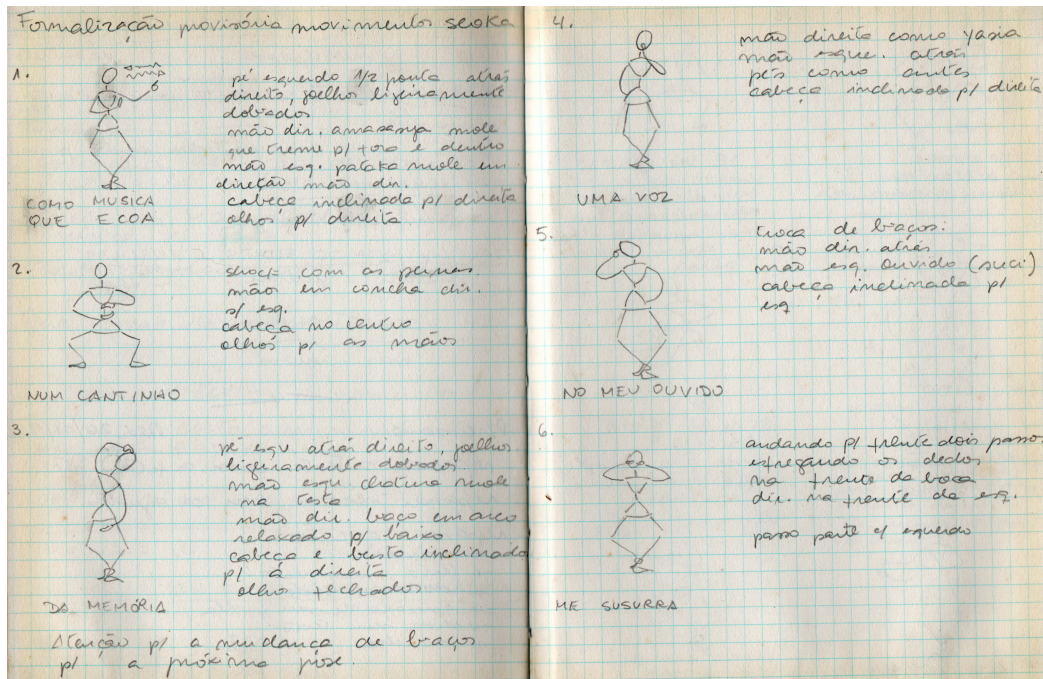 Formalização provisória movimentos seoka
1.
pé esquerdo 1/2 ponta atrás
direito, joelhos ligeiramente
dobrados
mão dir. amarasya mole
que treme p/ fora e dentro
mão esq. pataka mole em
direção mão dir.
cabeça inclinada p/ direita
olhos p/ direita
COMO MUSICA
QUE ECOA
2.
com as pernas
mãos em concha dir.
s/ esq.
cabeça no centro
olhos p/ as mãos
NUM CANTINHO
3.
pé esqu atrás direito, joelhos
ligeiramente dobrados
mão esqu chatura mole
na testa
mão dir. braço em arco
relaxado p/ baixo
cabeça e busto inclinado
p/ á direita
olhos fechados
DA MEMÓRIA
Atenção p/ a mudança de braços
p/ a próxima pose.
4.
mão direita como yasia
mão esque. atrás
pés como antes
cabeça inclinada p/ direita
UMA VOZ
5.
troca de braços:
mão dir. atrás
mão esq. ouvido (suci)
cabeça inclinada p/
esq
NO MEU OUVIDO
6.
andando p/ frente dois passos
esfregando os dedos
na frente da boca
dir. na frente da esq.
passo parte c/ esquerdo
ME SUSURRA